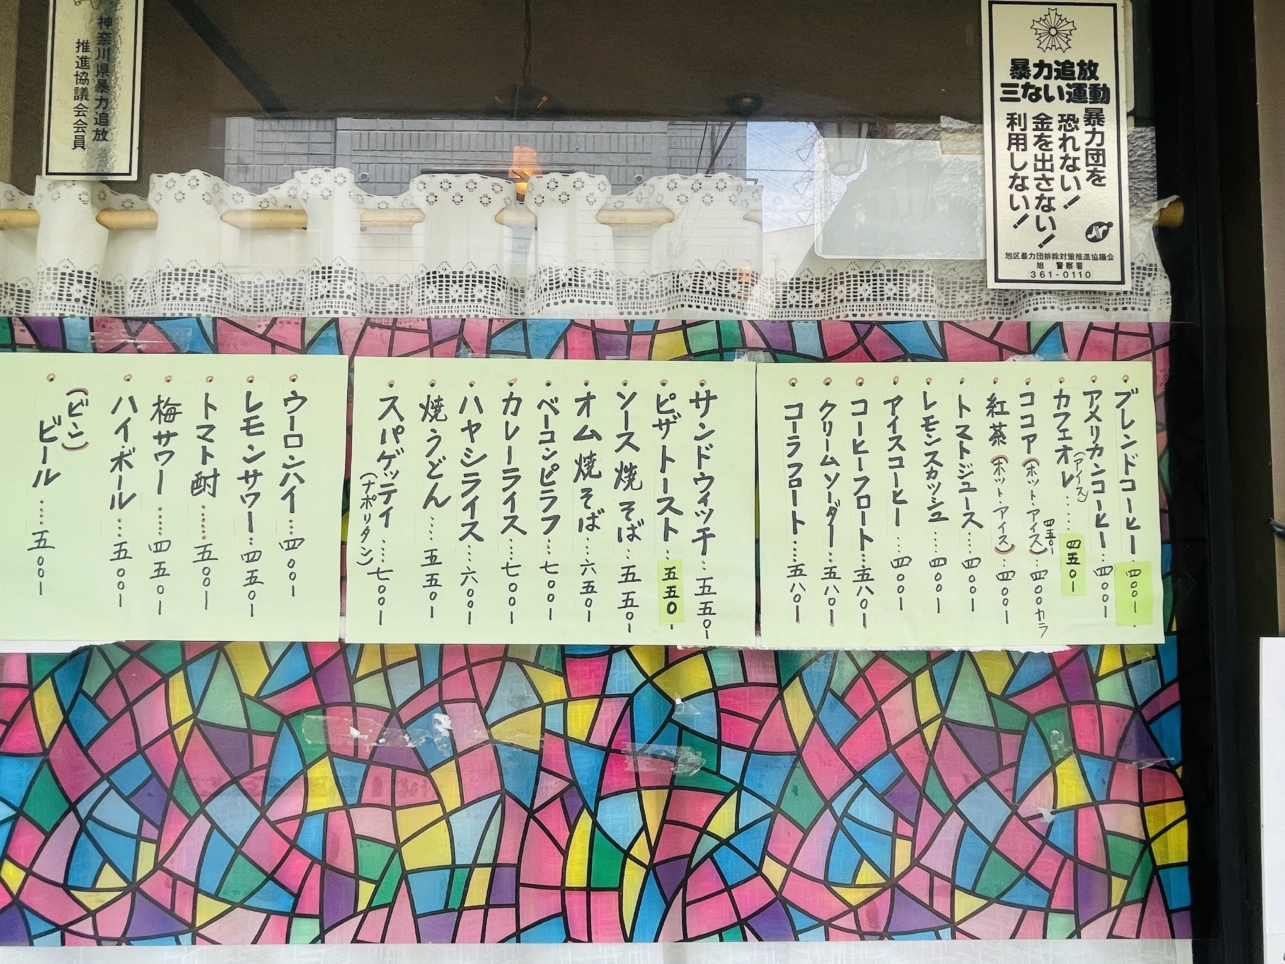 神奈川県暴力追放
推進協議会会員
暴力追放
三ない運動
暴力団を
恐れない!
金を出さない!
利用しない!
地区暴力団排除対策推進協議会
旭警察署
361-0110
ブレンドコーヒー 四〇〇ー
アメリカンコーヒー…四〇〇ー
カフェオレ(アイス)…四五〇ー
ココア(ホット・アイス)…四〇〇カラ 四五〇ー
紅茶(ホット・アイス)…四〇〇ー
トマトジュース…四〇〇ー
レモンスカッシュ…四〇〇ー
アイスコーヒー…四〇〇ー
コーヒーフロート…五八〇ー
クリームソーダー…五八〇ー
コーラフロート…五八〇ー
サンドウィッチ…五五〇ー
ピザトースト…五五〇ー
ソース焼そば…五五〇ー
オム焼そば…六五〇ー
ベーコンピラフ…七〇〇ー
カレーライス…七〇〇ー
ハヤシライス…六〇〇ー
焼うどん…五五〇ー
スパゲッティ(ナポリタン)…七〇〇ー
ウーロンハイ…四〇〇ー
レモンサワー…四五〇ー
トマト酎…五〇〇ー
梅サワー…四五〇ー
ハイボール…五〇〇ー
(ビン)
ビール…五〇〇ー